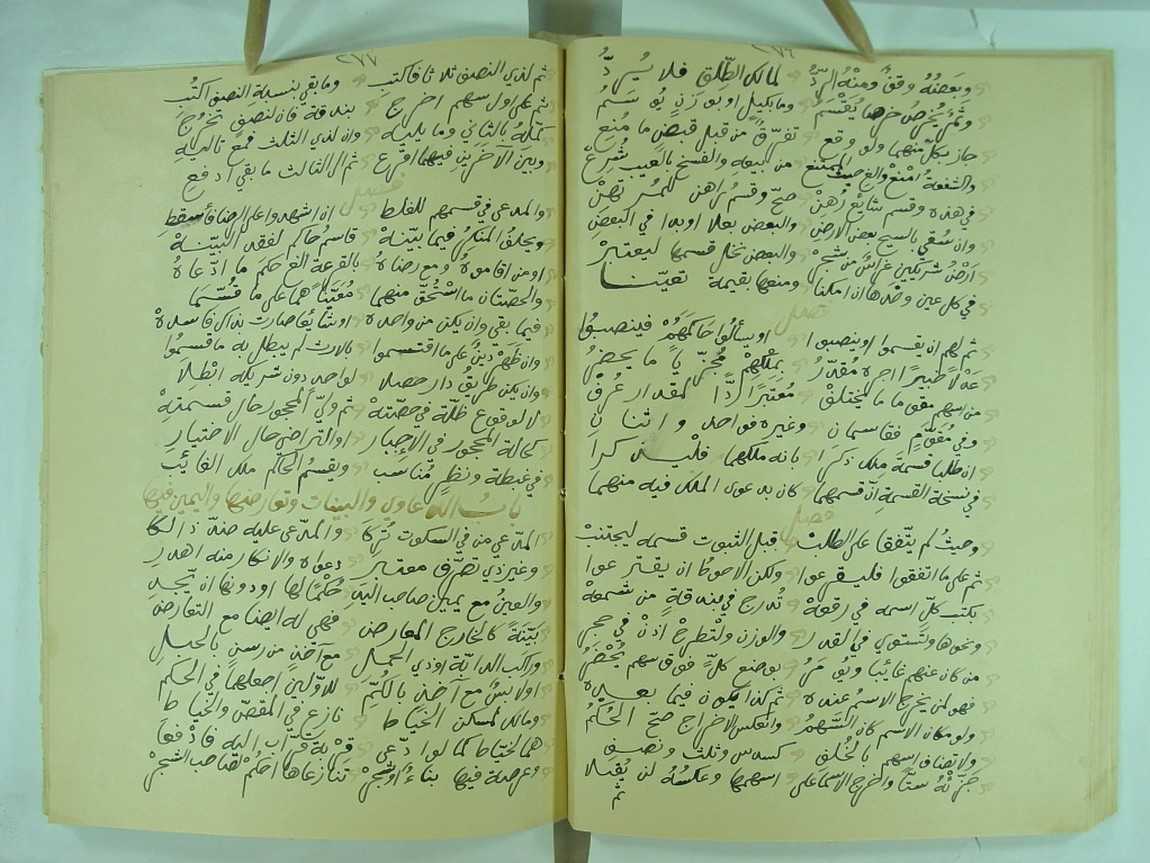 ٢٧٦
وبعضه وقف ومنه الرد لمالك الطلق فلا يرد
وثمر يخرص خرصها يقسم وما بكيل او بوزن يوسم
جاز بكل منهما ولو وقع تفرق من قبل قبض ما منع
والشفعة امنع والغ حيث الممتنع من بيعه والفسخ بالعيب شرع
في هذه وقسم شايع رهن صح وقسم راهن للمرتهن
وان سقي بالسيح بعض الارض والبعض بعلا او بدا في البعض
ارض شريكين غراس من شجر والبعض نخل قسمها ليعتبر
في كل عين وحدها ان امكنا ومنعها بقيمة تعينا
فصل
ثم لهم ان يقسموا او ينصبوا او يسألوا حاكمهم فينصب
عدلا خبيرا اجره مقدر بملكهم مجربا ما يحضر
من اسهم مقوما ما المختلف معتبرا ردا لمقدار عرف
وفي مقوم فقاسمان وغيره فواحد واثنان
ان طلبا قسمة ملك ذكرا بانه ملكهما فليذكرا
في نسخة القسمة ان قسمهما كان بدعوى الملك فيه منهما
فصل
وحيث لم يتفقا على الطلب قبل الثبوت قسمه ليجتنب
ثم على ما اتفقوا فليقرعوا ولكن الاحوط ان يقترعوا
بكتب كل اسمه في رقعة تدرج في بندقة من شمعة
ونحوها ولتستوي في القدر والوزن ولتطرح اذن في حجر
من كان عنهم غائبا ويؤمر بوضع كل فوق سهم يحضر
فهو لمن يخرج الاسم عنده ثم كذا يكون فيما بعده
ولو مكان الاسم كان السهم وانعكس الاخراج صح الحكم
ولاختلاف اسهم بالخلق كسدس وثلث ونصف
جزئه ستا واخرج الاسما على اسهمها وعكسه لن يقبلا
ثم
٢٧٧
ثم لذي النصف ثلاثا فاكتب وما بقي بنسبة النصف اكتب
ثم على اول سهم اخرج بندقة فان لنصف تخرج
كمله بالثاني وما يليه وان لذي الثلث فمع تاليه
وبين الاخرين فيهما اقرع ثم الى الثالث ما بقي ادفع
فصل
والمدعي في قسمهم للغلط ان اشهدوا على الرضا فأسقط
ويحلف المنكر فيما بينه قاسم حاكم لفقد البينة
او من اقاموه ومع رضاه بالقرعة الغ حكم ما ادعاه
والحصتان ما استحق منهما معينا هما على ما قسما
فيما بقي وان يكن من واحده او شائعا صارت بذاك فاسده
وان ظهر دين على ما اقتسموا بالارث لم يبطل به ما قسموا
وان يكن طريق دار حصلا لواحد دون شريكه ابطلا
لا لوقوع ظلة في حصته ثم ولي المحجور حال قسمته
كحالة المحجور في الاجبار او التراضي حال الاختيار
في غبطة ونظر مناسب ويقسم الحاكم ملك الغائب
باب الدعاوى والبينات وتعارضها واليمين فيها
المدعي من في السكوت تركا والمدعى عليه ضد ذالكا
وغير ذي تصرف معتبر دعواه والانكار منه اهدر
والعين مع يمين صاحب اليد حكما لها او دونها ان تجد
بينة كالخارج المعارض فهي له ايضا مع التعارض
وراكب الدابة او ذي الحمل مع اخذ من رسن بالحبل
او لابس مع آخذ بالكم للاولين اجعلهما في الحكم
ومالك لمسكن الخياط نازع في المقص والخياط
هما لخياط كما لو ادعى قربة قراب اليه فادفعا
وعرصة فيها بناء او شجر تنازعاها احكم لصاحب الشجر